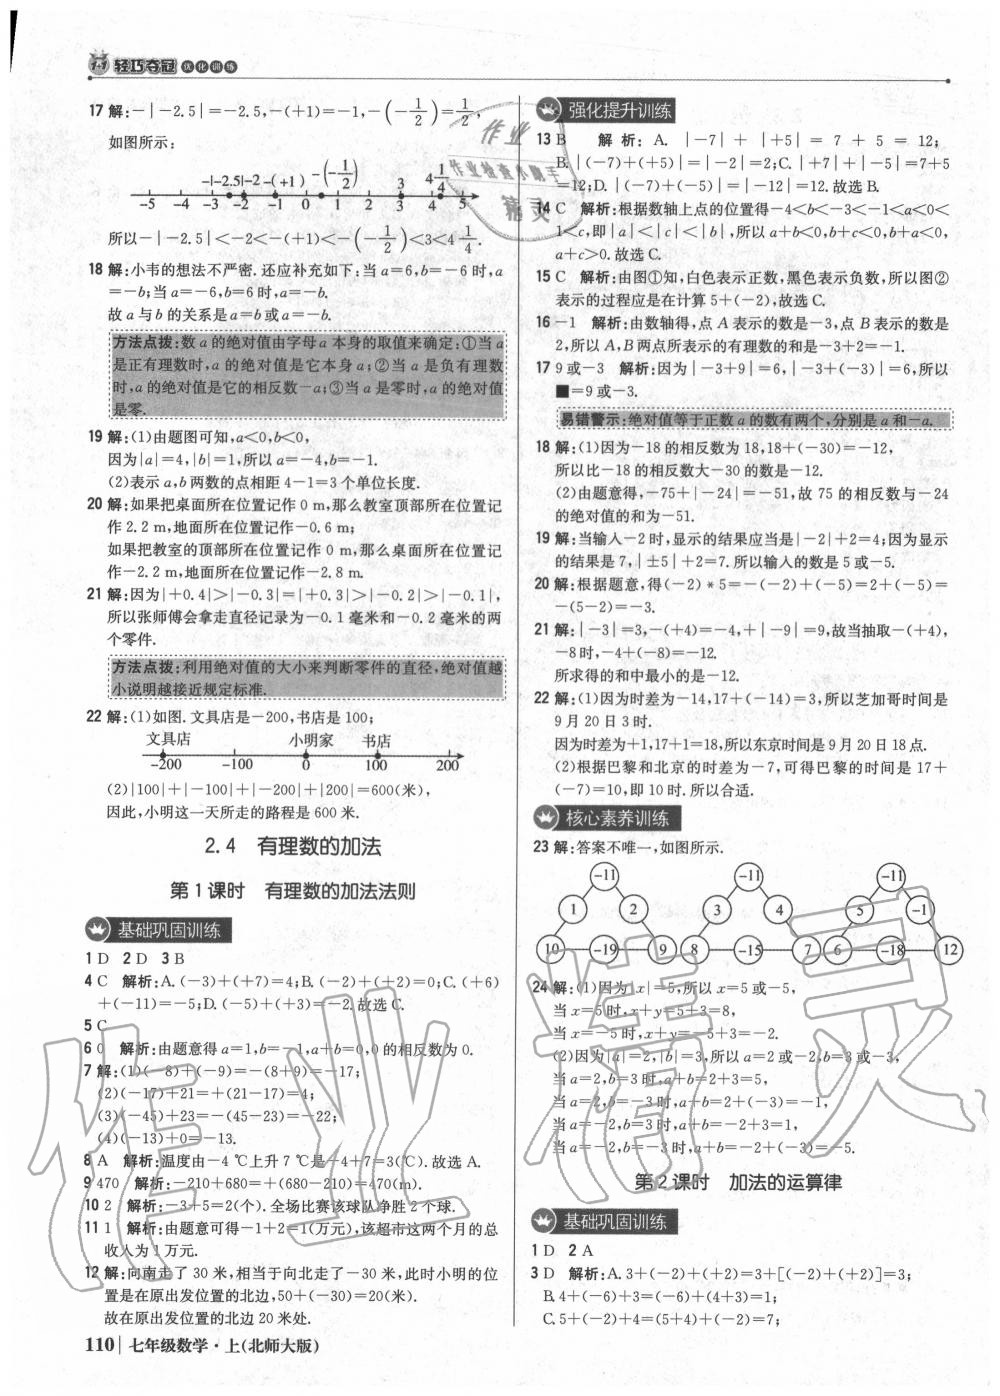 1+1 轻巧夺冠 优化训练
17 解:-|-2.5|=-2.5,-(+1)=-1,-(-1/2)=1/2,
如图所示:
-|-2.5| -2 -(+1) -(-1/2) 3 4 1/4
-5 -4 -3 -2 -1 0 1 2 3 4 5
所以-|-2.5|<-2<-(+1)<-(-1/2)<3<4 1/4.
18 解:小韦的想法不严密.还应补充如下:当 a=6,b=-6 时,a
=-b;当 a=-6,b=6 时,a=-b.
故 a 与 b 的关系是 a=b 或 a=-b.
方法点拨:数 a 的绝对值由字母 a 本身的取值来确定:①当 a
是正有理数时,a 的绝对值是它本身 a;②当 a 是负有理数
时,a 的绝对值是它的相反数-a;③当 a 是零时,a 的绝对值
是零.
19 解:(1)由题图可知,a<0,b<0,
因为|a|=4,|b|=1,所以 a=-4,b=-1.
(2)表示 a,b 两数的点相距 4-1=3 个单位长度.
20 解:如果把桌面所在位置记作 0 m,那么教室顶部所在位置记
作 2.2 m,地面所在位置记作-0.6 m;
如果把教室的顶部所在位置记作 0 m,那么桌面所在位置记
作-2.2 m,地面所在位置记作-2.8 m.
21 解:因为|+0.4|>|-0.3|=|+0.3|>|-0.2|>|-0.1|,
所以张师傅会拿走直径记录为-0.1 毫米和-0.2 毫米的两
个零件.
方法点拨:利用绝对值的大小来判断零件的直径,绝对值越
小说明越接近规定标准.
22 解:(1)如图.文具店是-200,书店是 100;
文具店 小明家 书店
-200 -100 0 100 200
(2)|100|+|-100|+|-200|+|200|=600(米),
因此,小明这一天所走的路程是 600 米.
2.4 有理数的加法
第 1 课时 有理数的加法法则
基础巩固训练
1 D 2 D 3 B
4 C 解析:A.(-3)+(+7)=4;B.(-2)+(+2)=0;C.(+6)
+(-11)=-5;D.(-5)+(+3)=-2.故选 C.
5 C
6 0 解析:由题意得 a=1,b=-1,a+b=0,0 的相反数为 0.
7 解:(1)(-8)+(-9)=-(8+9)=-17;
(2)(-17)+21=+(21-17)=4;
(3)(-45)+23=-(45-23)=-22;
(4)(-13)+0=-13.
8 A 解析:温度由-4 ℃上升 7 ℃是-4+7=3(℃).故选 A.
9 470 解析:-210+680=+(680-210)=470(m).
10 2 解析:-3+5=2(个).全场比赛该球队净胜 2 个球.
11 1 解析:由题意可得-1+2=1(万元),该超市这两个月的总
收入为 1 万元.
12 解:向南走了 30 米,相当于向北走了-30 米,此时小明的位
置是在原出发位置的北边,50+(-30)=20(米).
故在原出发位置的北边 20 米处.
110 七年级数学·上(北师大版)
强化提升训练
13 B 解析:A.|-7|+|+5|=7+5=12;
B.|(-7)+(+5)|=|-2|=2;C.|+7|+|-5|=7+5
=12;D.|(-7)+(-5)|=|-12|=12.故选 B.
14 C 解析:根据数轴上点的位置得-4<b<-3<-1<a<0<
1<c,即|a|<|c|<|b|,所以 a+b<0,b+c<0,b+a<0,
a+c>0.故选 C.
15 C 解析:由图①知,白色表示正数,黑色表示负数,所以图②
表示的过程应是在计算 5+(-2),故选 C.
16 -1 解析:由数轴得,点 A 表示的数是-3,点 B 表示的数是
2,所以 A,B 两点所表示的有理数的和是-3+2=-1.
17 9 或-3 解析:因为|-3+9|=6,|-3+(-3)|=6,所以
■=9 或-3.
易错警示:绝对值等于正数 a 的数有两个,分别是 a 和-a.
18 解:(1)因为-18 的相反数为 18,18+(-30)=-12,
所以比-18 的相反数大-30 的数是-12.
(2)由题意得,-75+|-24|=-51,故 75 的相反数与-24
的绝对值的和为-51.
19 解:当输入-2 时,显示的结果应当是|-2|+2=4;因为显示
的结果是 7,|±5|+2=7.所以输入的数是 5 或-5.
20 解:根据题意,得(-2)*5=-(-2)+(-5)=2+(-5)=
-(5-2)=-3.
21 解:|-3|=3,-(+4)=-4,+|-9|=9,故当抽取-(+4),
-8 时,-4+(-8)=-12.
所求得的和中最小的是-12.
22 解:(1)因为时差为-14,17+(-14)=3,所以芝加哥时间是
9 月 20 日 3 时.
因为时差为+1,17+1=18,所以东京时间是 9 月 20 日 18 点.
(2)根据巴黎和北京的时差为-7,可得巴黎的时间是 17+
(-7)=10,即 10 时.所以合适.
核心素养训练
23 解:答案不唯一,如图所示.
-11 -11 -11
1 2 3 4 5 -1
10 -19 9 8 -15 7 6 -18 12
24 解:(1)因为|x|=5,所以 x=5 或-5,
当 x=5 时,x+y=5+3=8,
当 x=-5 时,x+y=-5+3=-2.
(2)因为|a|=2,|b|=3,所以 a=2 或-2,b=3 或-3,
当 a=2,b=3 时,a+b=2+3=5,
当 a=2,b=-3 时,a+b=2+(-3)=-1,
当 a=-2,b=3 时,a+b=-2+3=1,
当 a=-2,b=-3 时,a+b=-2+(-3)=-5.
第 2 课时 加法的运算律
基础巩固训练
1 D 2 A
3 D 解析:A.3+(-2)+(+2)=3+[(-2)+(+2)]=3;
B.4+(-6)+3=(-6)+(4+3)=1;
C.5+(-2)+4=(5+4)+(-2)=7;
作业
作业检查小助手
精灵
作业精灵